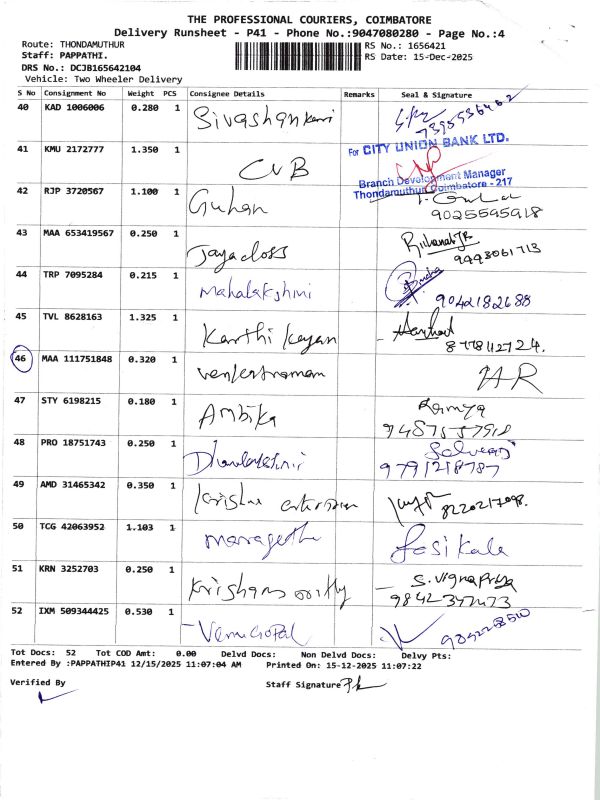 THE PROFESSIONAL COURIERS, COIMBATORE
Delivery Runsheet - P41 - Phone No.:9047080280 - Page No.:4
Route: THONDAMUTHUR RS No.: 1656421
Staff: PAPPATHI. RS Date: 15-Dec-2025
DRS No.: DCJB165642104
Vehicle: Two Wheeler Delivery
S No Consignment No Weight PCS Consignee Details Remarks Seal & Signature
40 KAD 1006006 0.280 1 Sivashankari
For CITY UNION BANK LTD.
41 KMU 2172777 1.350 1 CUB
Branch Development Manager
Thondamuthur Coimbatore - 217
42 RJP 3720567 1.100 1 Guhan
9025595918
43 MAA 653419567 0.250 1 Jayadoss
44 TRP 7095284 0.215 1 Mahalakshmi
9042182688
45 TVL 8628163 1.325 1 Karthi keyan
46 MAA 111751848 0.320 1 venkatraman
47 STY 6198215 0.180 1 Ambika Ramya
48 PRO 18751743 0.250 1
9791218787
49 AMD 31465342 0.350 1
50 TCG 42063952 1.103 1 Sasikala
51 KRN 3252703 0.250 1 Krishnamoorthy S. Vignapriya
52 IXM 509344425 0.530 1 Venugopal
Tot Docs: 52 Tot COD Amt: 0.00 Delvd Docs: Non Delvd Docs: Delvy Pts:
Entered By :PAPPATHIP41 12/15/2025 11:07:04 AM Printed On: 15-12-2025 11:07:22
Verified By Staff Signature